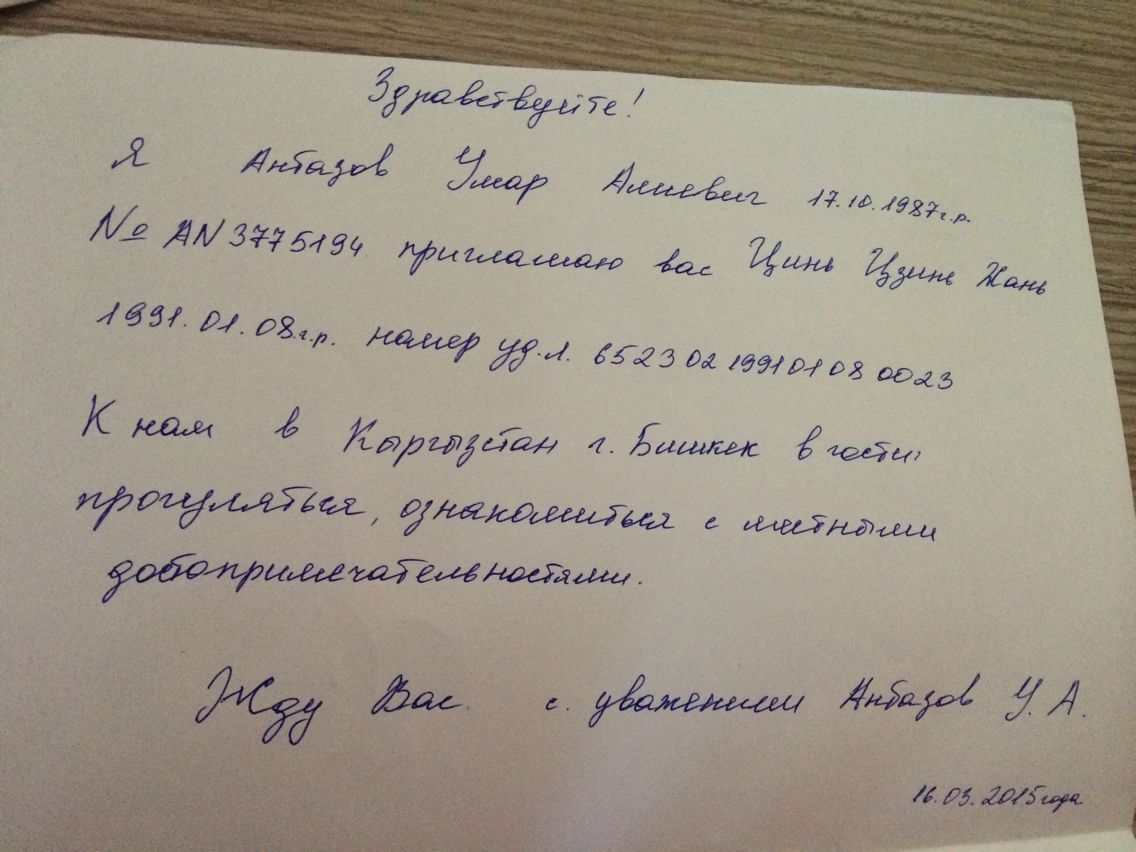 Здравствуйте!
Я Анбазов Умар Алиевич 17.10.1987г.р.
№ AN3775194 приглашаю вас Цинь Цзинь Жань
1991.01.08г.р. номер уд.л. 652302199101080023
К нам в Кыргызстан г. Бишкек в гости:
прогуляться, ознакомиться с местными
добопримечательностями.
Жду Вас. с. уважением Анбазов У.А.
16.03.2015года